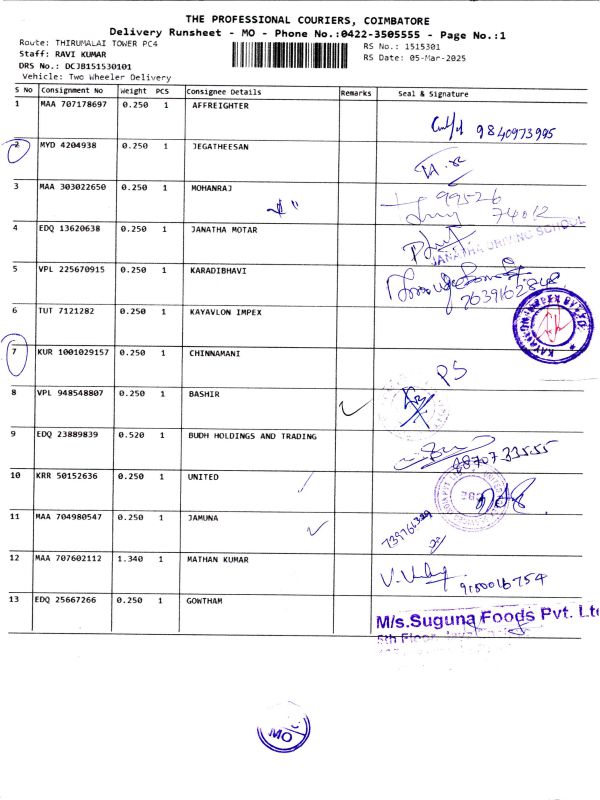 THE PROFESSIONAL COURIERS, COIMBATORE
Delivery Runsheet - MO - Phone No.:0422-3505555 - Page No.:1
Route: THIRUMALAI TOWER PC4
RS No.: 1515301
Staff: RAVI KUMAR
RS Date: 05-Mar-2025
DRS No.: DCJB151530101
Vehicle: Two Wheeler Delivery
S No Consignment No Weight PCS Consignee Details Remarks Seal & Signature
1 MAA 707178697 0.250 1 AFFREIGHTER
9840973995
2 MYD 4204938 0.250 1 JEGATHEESAN
3 MAA 303022650 0.250 1 MOHANRAJ
99526
74012
4 EDQ 13620638 0.250 1 JANATHA MOTAR
JANATHA DRIVING SCHOOL
5 VPL 225670915 0.250 1 KARADIBHAVI
7639162848
6 TUT 7121282 0.250 1 KAYAVLON IMPEX
7 KUR 1001029157 0.250 1 CHINNAMANI
PS
8 VPL 948548807 0.250 1 BASHIR
9 EDQ 23889839 0.520 1 BUDH HOLDINGS AND TRADING
88707 33555
10 KRR 50152636 0.250 1 UNITED
11 MAA 704980547 0.250 1 JAMUNA
12 MAA 707602112 1.340 1 MATHAN KUMAR
9150016754
13 EDQ 25667266 0.250 1 GOWTHAM
M/s.Suguna Foods Pvt. Lt
5th Floor,
MO